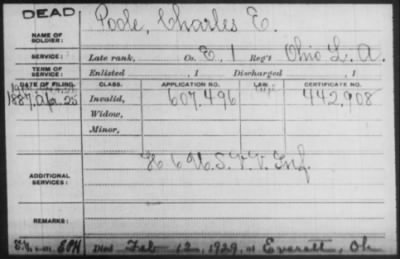 DEAD
NAME OF SOLDIER: Poole, Charles E.
SERVICE: Late rank, Co. E. 1 Reg't Ohio L. A.
TERM OF SERVICE: Enlisted , 1 Discharged , 1
DATE OF FILING. CLASS. APPLICATION NO. LAW. CERTIFICATE NO.
1887, Apr. 25 Invalid, 607,496 442,908
Widow,
Minor,
ADDITIONAL SERVICES: U.S.V.V. Inf.
REMARKS:
Died Feb 12, 1929, at Everett, Oh